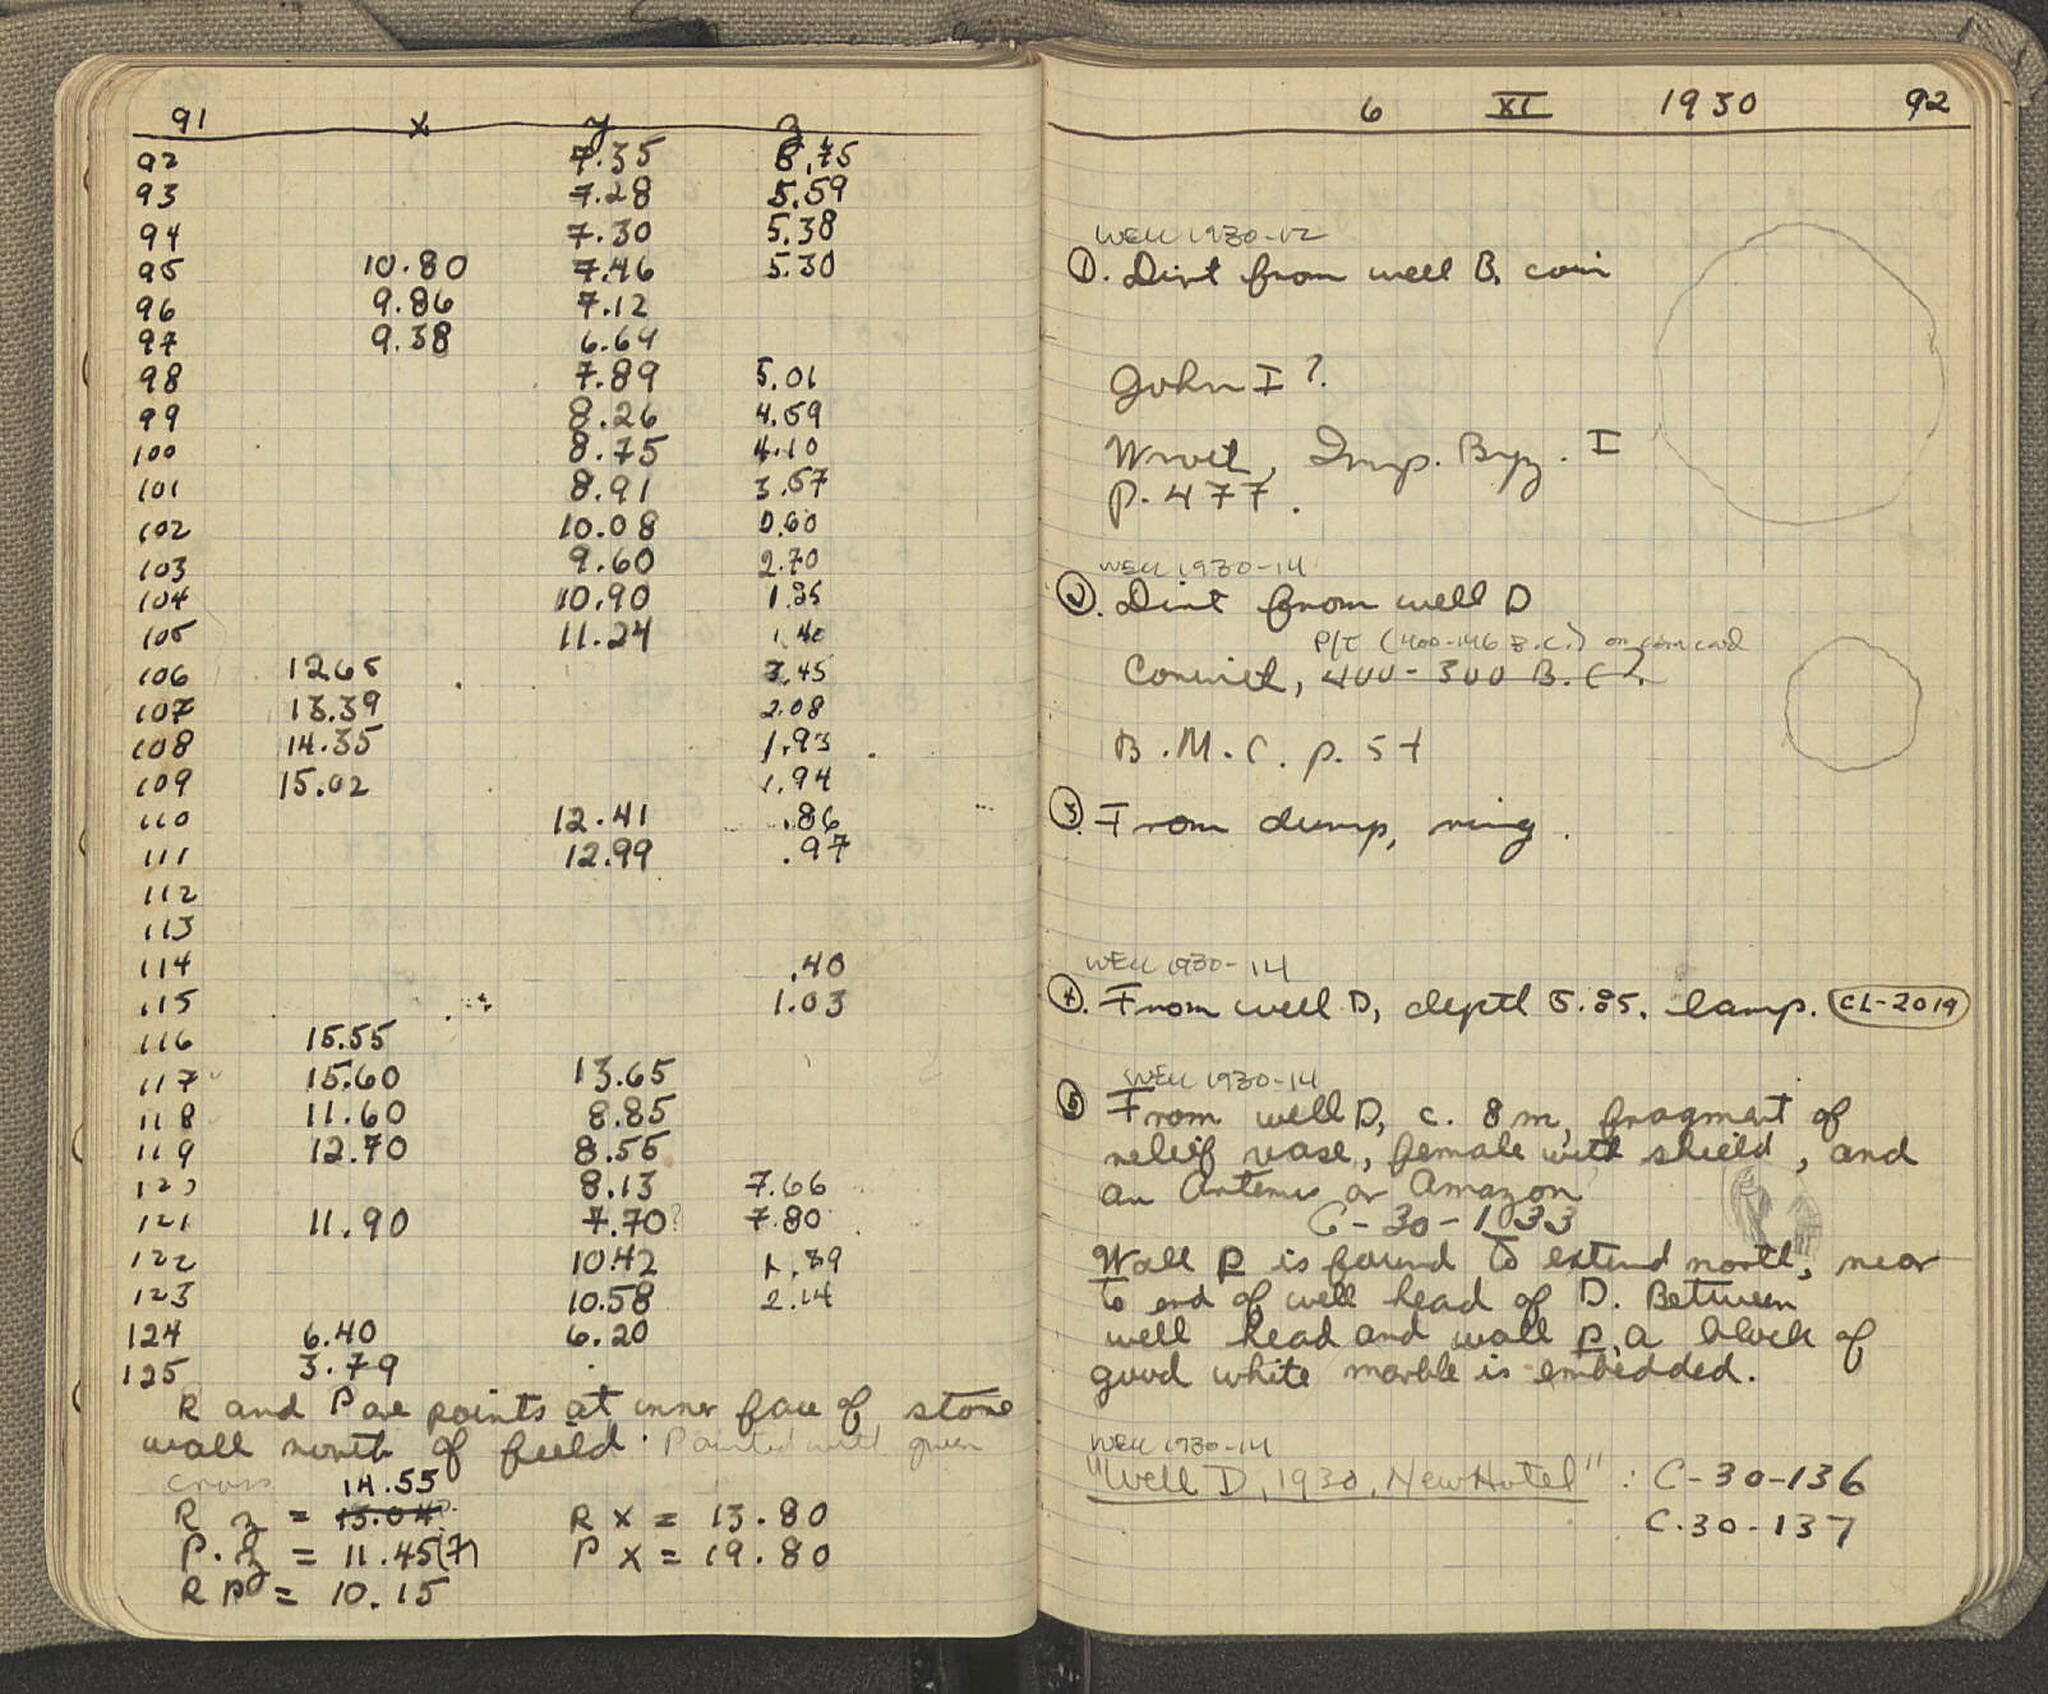 91 x y z
92 7.35 6.75
93 7.28 5.59
94 7.30 5.38
95 10.80 7.46 5.30
96 9.86 7.12
97 9.38 6.64
98 7.89 5.01
99 8.26 4.59
100 8.75 4.10
101 8.91 3.57
102 10.08 0.60
103 9.60 2.70
104 10.90 1.85
105 11.24 1.40
106 12.65 3.45
107 13.39 2.08
108 14.35 1.93
109 15.02 1.94
110 12.41 .86
111 12.99 .97
112
113
114 .40
115 1.03
116 15.55
117 15.60 13.65
118 11.60 8.85
119 12.70 8.55
120 8.13 7.66
121 11.90 7.70? 7.80
122 10.42 1.89
123 10.58 2.14
124 6.40 6.20
125 3.79
R and P are points at inner face of stone
wall north of field. Painted with green
cross
14.55
R z = 13.04? R x = 13.80
P. z = 11.45(7) P x = 19.80
R P = 10.15
6 XI 1930 92
WELL 1930-12
1. Dirt from well B, coin
John I?
Wroth, Imp. Byz. I
P. 477.
WELL 1930-14
2. Dirt from well D
P/T (400-146 B.C.) on coin card
Corinth, 400-300 B.C?
B.M.C. p. 54
3. From dump, ring.
WELL 1930-14
4. From well D, depth 5.85. lamp. CL-2019
WELL 1930-14
5 From well D, c. 8 m, fragment of
relief vase, female with shield, and
an Artemis or Amazon
C-30-133
Wall P is found to extend north, near
to end of well head of D. Between
well head and wall P, a block of
good white marble is embedded.
WELL 1930-14
"Well D, 1930, New Hotel" : C-30-136
C.30-137